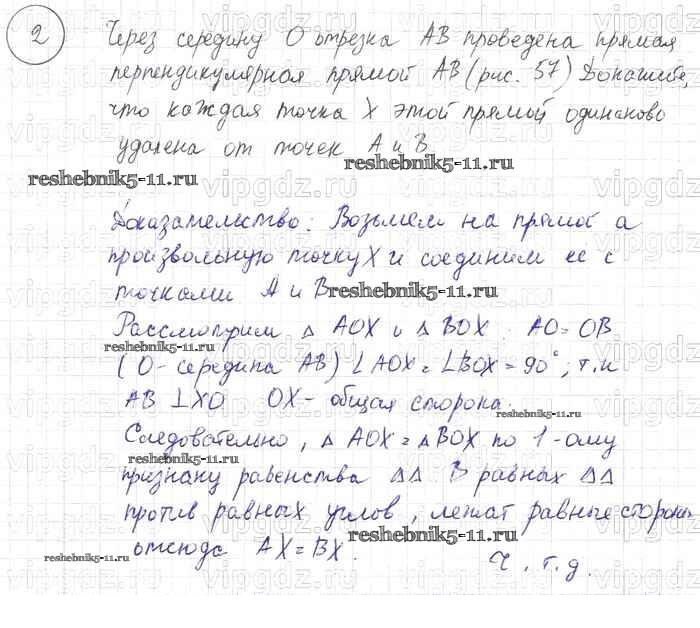 2 Через середину О отрезка АВ проведена прямая
перпендикулярная прямой АВ (рис. 57) Докажите,
что каждая точка Х этой прямой одинаково
удалена от точек А и В.
reshebnik5-11.ru reshebnik5-11.ru
Доказательство: Возьмем на прямой а
произвольную точку Х и соединим ее с
точками А и В reshebnik5-11.ru
Рассмотрим Δ AOX и Δ BOX. AO = OB
reshebnik5-11.ru
(О - середина АВ) ∠AOX = ∠BOX = 90°, т.к
AB ⊥ XO OX - общая сторона.
reshebnik5-11.ru
Следовательно, Δ AOX = Δ BOX по 1-ому
reshebnik5-11.ru
признаку равенства ΔΔ В равных ΔΔ
против равных углов, лежат равные стороны
reshebnik5-11.ru
отсюда AX = BX.
reshebnik5-11.ru
Ч. т. д.